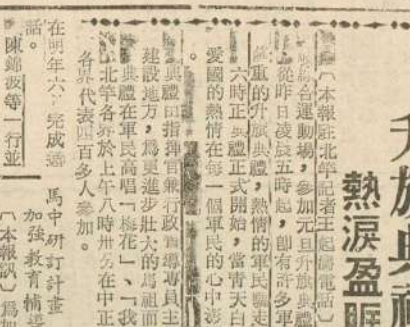 升旗典禮
熱淚盈眶
〔本報駐北竿記者王
運動場，參加元旦升旗典禮
從昨日凌晨五時起，卽有許多軍
重的升旗典禮，熱情的軍民
六時正典禮正式開始，當青天白
愛國的熱情在每一個軍民的心中澎
。
典禮由指揮官兼行政
建設地方，爲更進步壯大的馬祖而
典禮在軍民高唱「梅花」、「我
北竿各界於上午八時卅分在中正
各界代表四百多人參加。
在明年六
完成
話。
陳錦波等一行並
馬中研訂計畫
加強教育輔
〔本報訊〕爲加